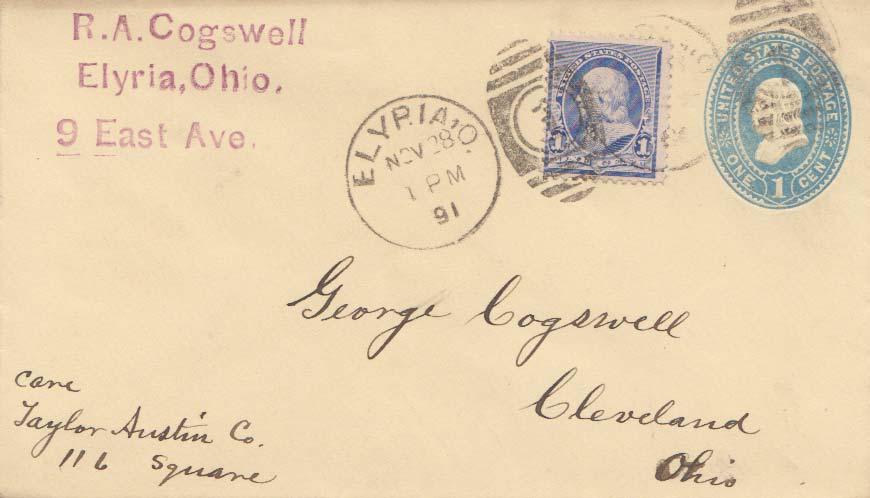 R.A. Cogswell
Elyria, Ohio.
9 East Ave.
ELYRIA, O.
NOV 28
1 PM
91
UNITED STATES POSTAGE
1 1
ONE CENT
UNITED STATES POSTAGE
ONE 1 CENT
George Cogswell
Cleveland
Ohio
Care
Taylor Austin Co.
116 Square